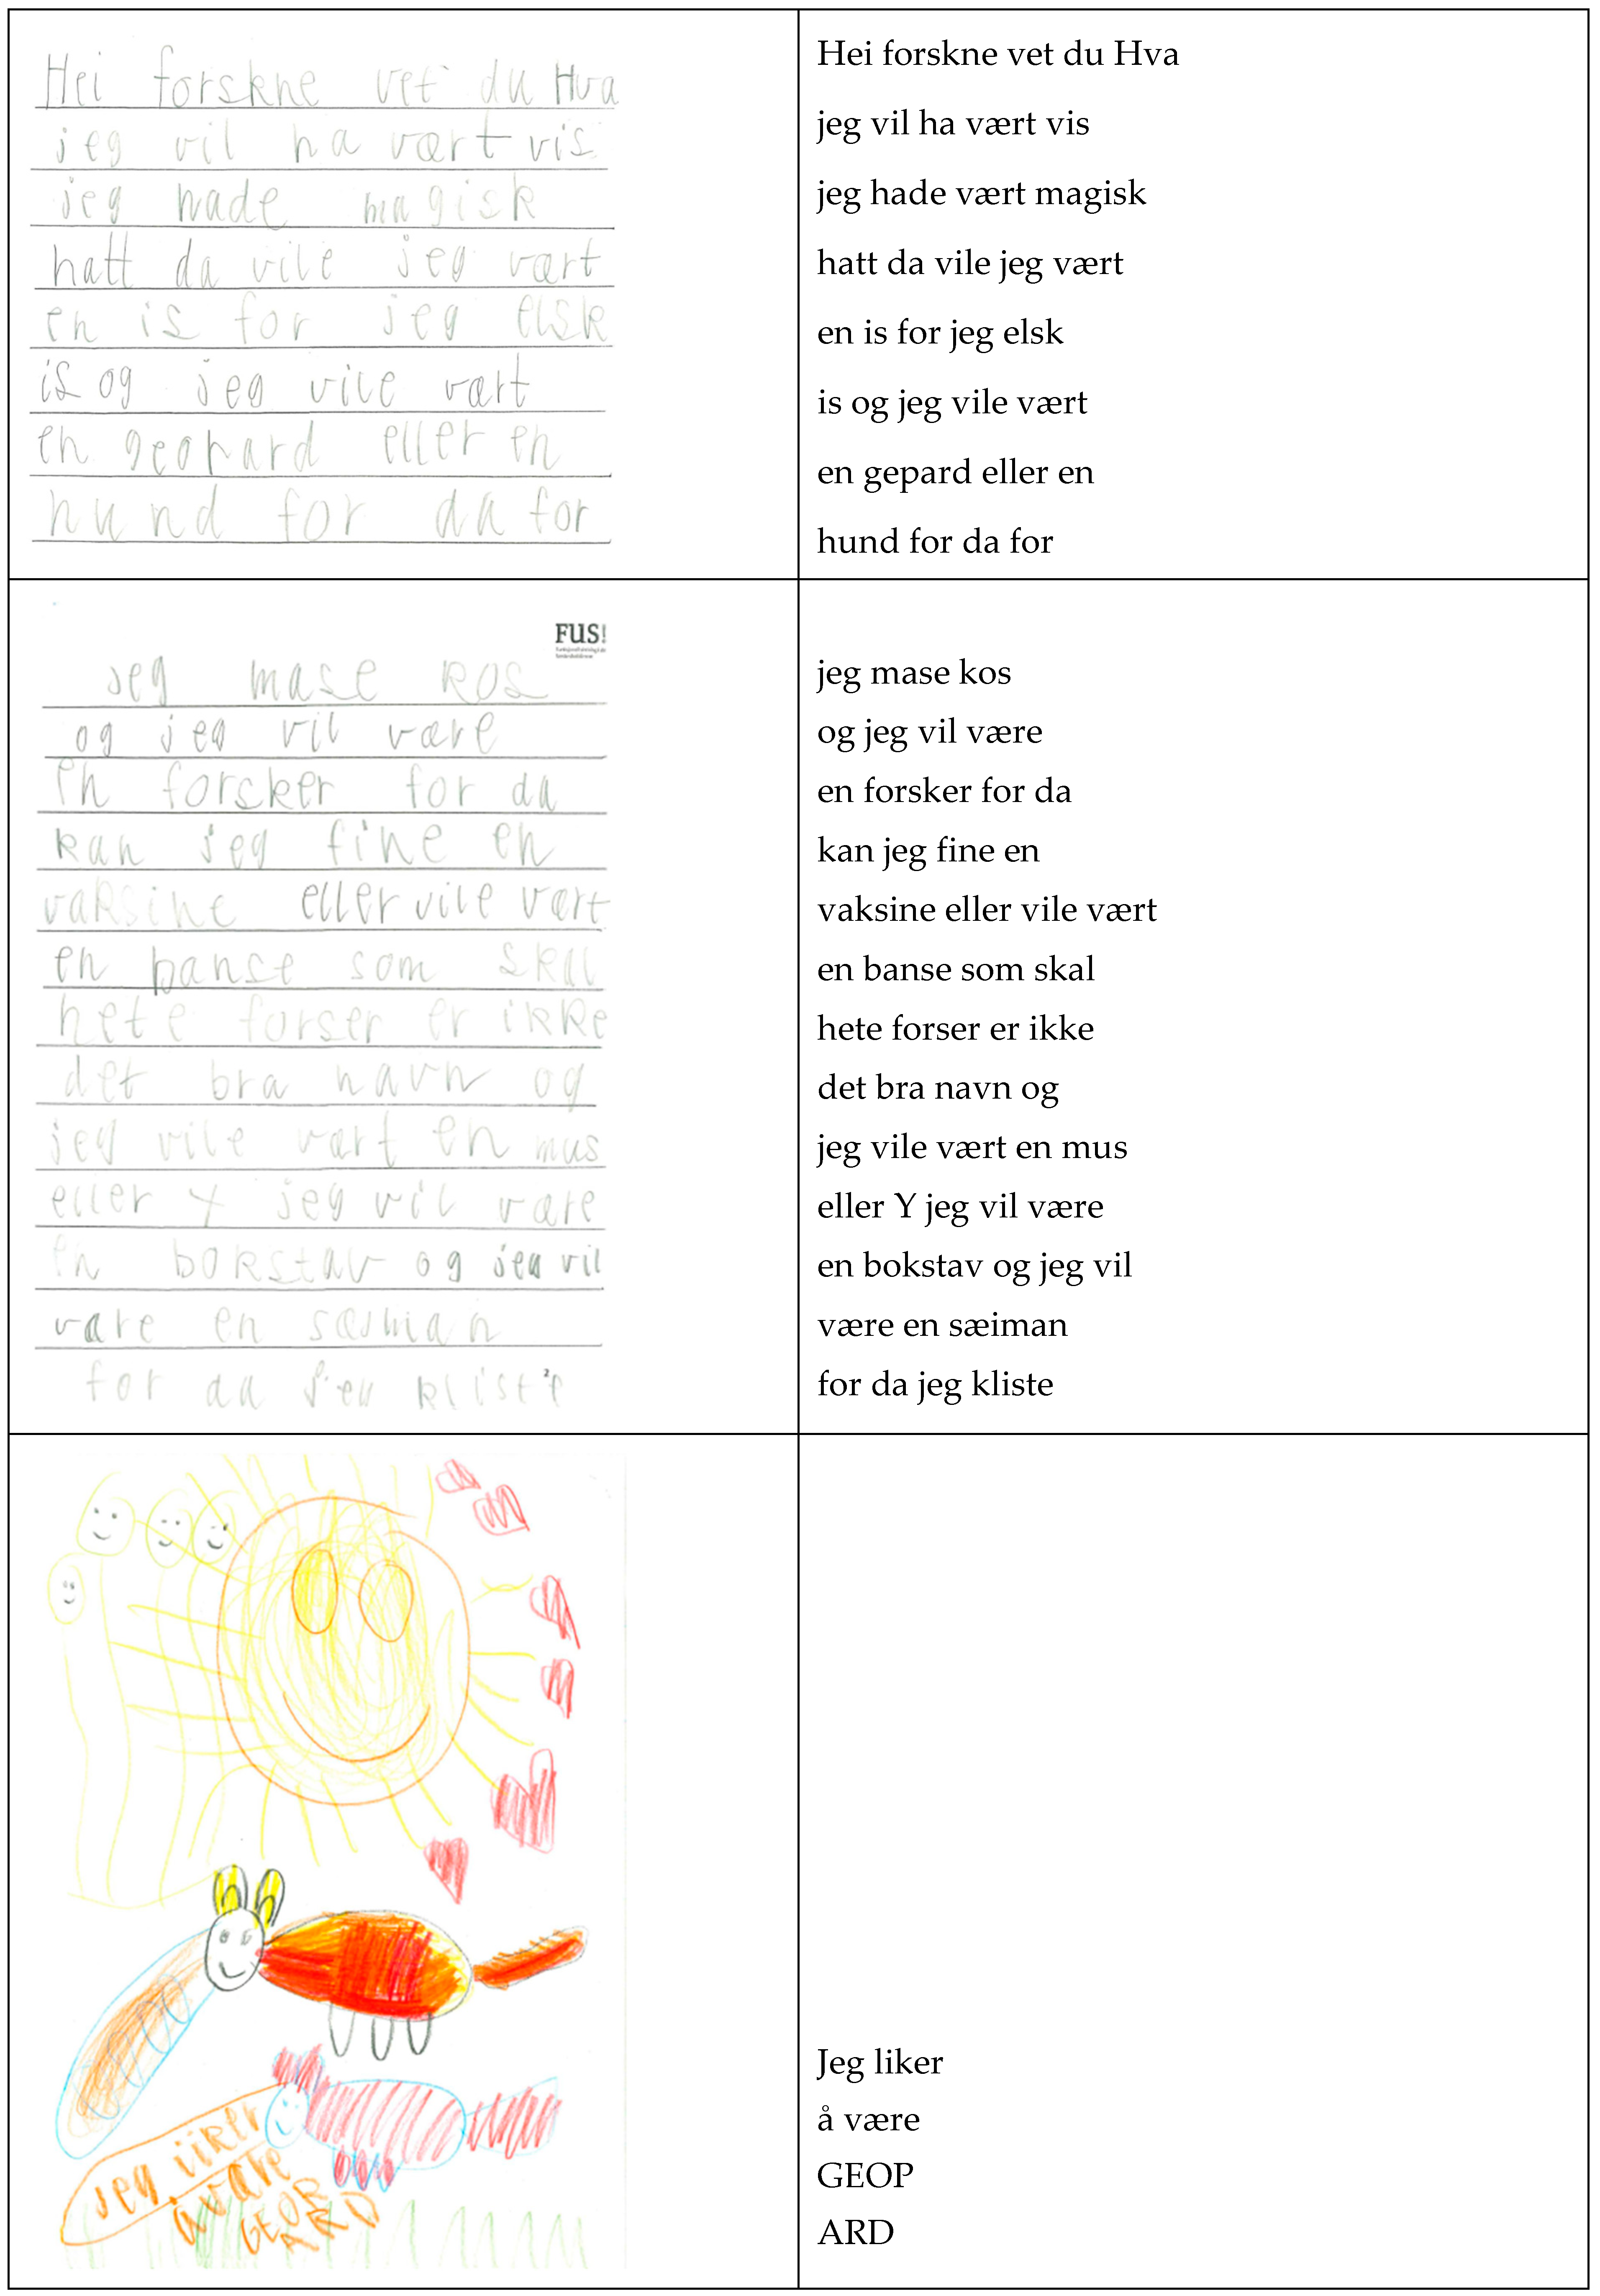 Hei forskne vet du Hva
jeg vil ha vært vis
jeg hade magisk
hatt da vile jeg vært
en is for jeg elsk
is og jeg vile vært
en geopard eller en
hund for da for
Hei forskne vet du Hva
jeg vil ha vært vis
jeg hade vært magisk
hatt da vile jeg vært
en is for jeg elsk
is og jeg vile vært
en gepard eller en
hund for da for
FUS!
jeg mase kos
og jeg vil være
en forsker for da
kan jeg fine en
vaksine eller vile vært
en banse som skal
hete forser er ikke
det bra navn og
jeg vile vært en mus
eller Y jeg vil være
en bokstav og jeg vil
være en sæiman
for da jeg kliste
jeg mase kos
og jeg vil være
en forsker for da
kan jeg fine en
vaksine eller vile vært
en banse som skal
hete forser er ikke
det bra navn og
jeg vile vært en mus
eller Y jeg vil være
en bokstav og jeg vil
være en sæiman
for da jeg kliste
jeg liker
å være
GEOP
ARD
Jeg liker
å være
GEOP
ARD